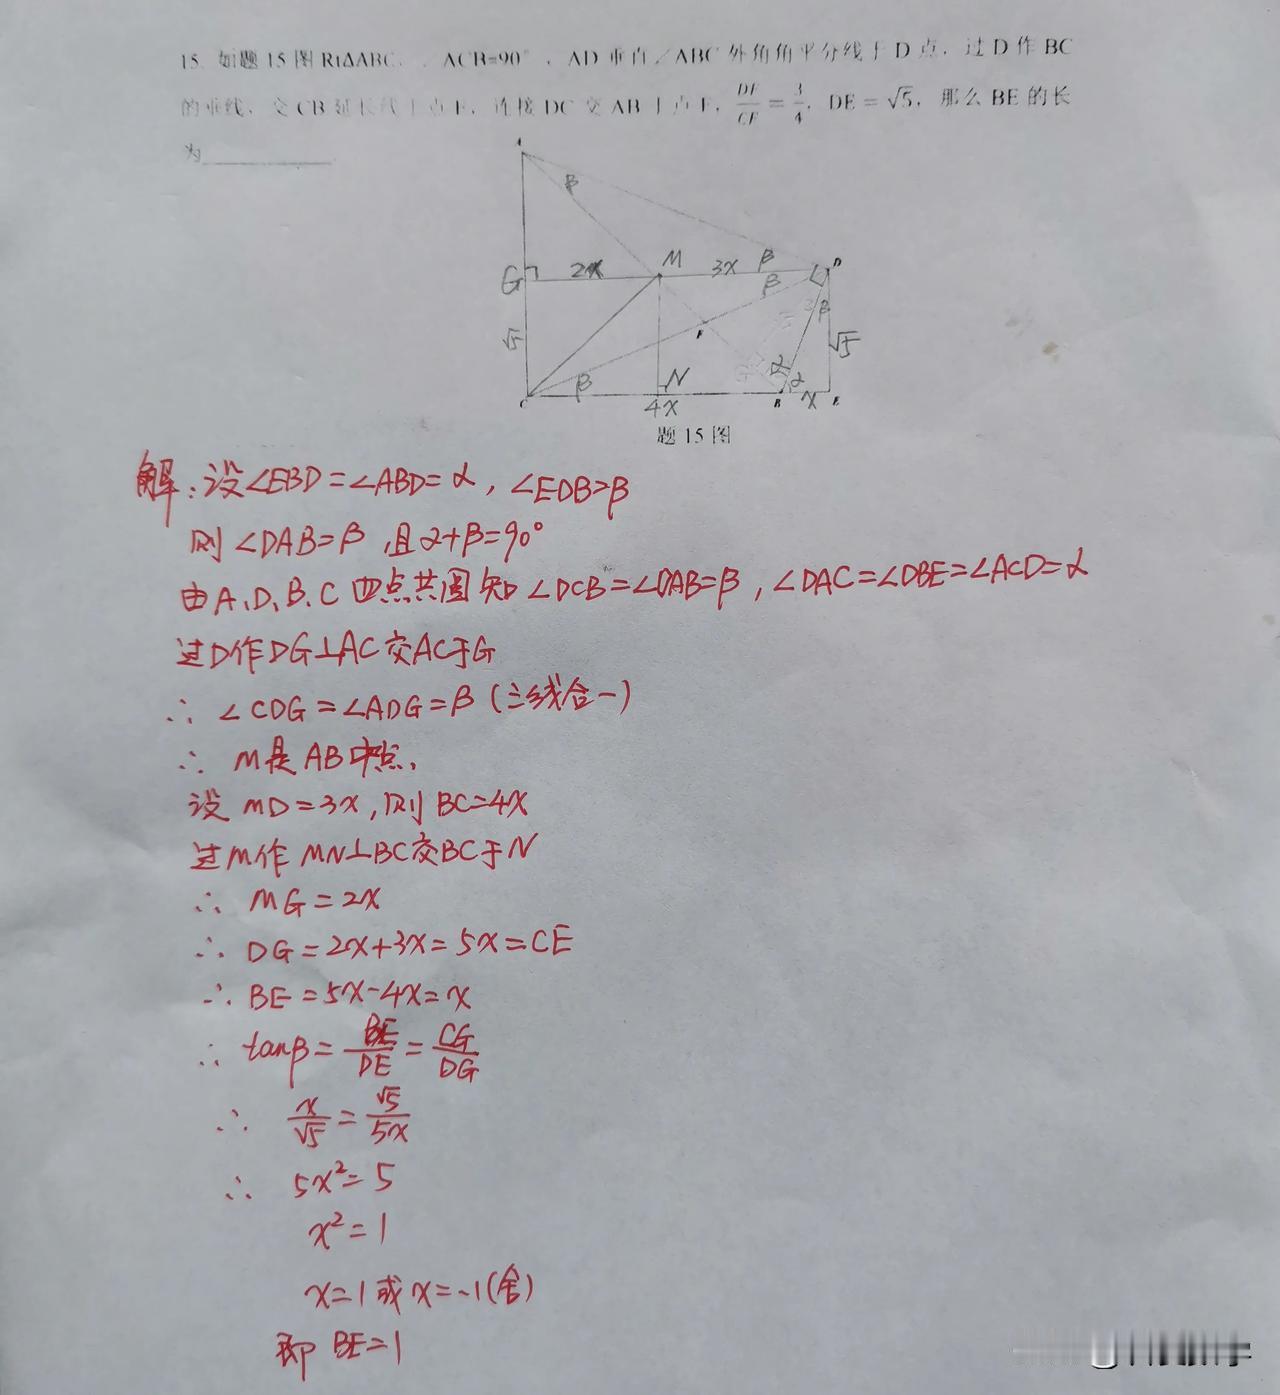 15. 如题 15 图 RtΔABC, ACB=90°, AD 垂直∠ABC 外角角平分线于 D 点, 过 D 作 BC
的垂线, 交 CB 延长线于点 E, 连接 DC 交 AB 于点 F, DF/CF = 3/4, DE = √5, 那么 BE 的长
为
A
β
G
2x
M
3x
β
D
β
√5
F
β
√5
β
N
α
α
C
4x
B
x
E
题 15 图
解:设∠EBD=∠ABD=α, ∠EDB=β
则∠DAB=β,且α+β=90°
由A、D、B、C四点共圆知∠DCB=∠DAB=β, ∠DAC=∠DBE=∠ACD=α
过D作DG⊥AC交AC于G
∴ ∠CDG=∠ADG=β(三线合一)
∴ M是AB中点,
设MD=3x,则BC=4x
过M作MN⊥BC交BC于N
∴ MG=2x
∴ DG=2x+3x=5x=CE
∴ BE=5x-4x=x
∴ tanβ=BE/DE=CG/DG
∴ x/√5=√5/5x
∴ 5x²=5
x²=1
x=1或x=-1(舍)
即BE=1